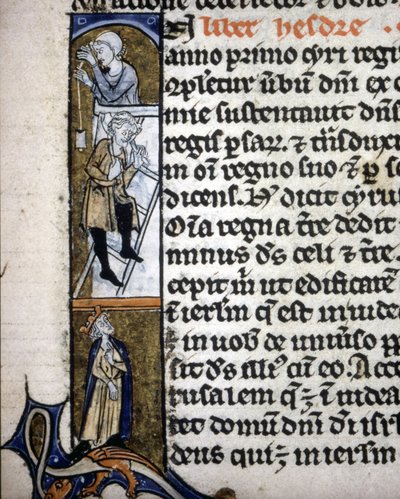 liber hesdre
anno primo cyri regi
9pleretur ūbū dn̄i ex o
mie suscitauit dn̄s
regis persarꝝ. ⁊ t̄nsduxit
in om̄i regno suo ⁊ ꝑ sc
dicens. H̄ dicit cyrus
Om̄ia regna t̄re dedit
minus ds̄ celi ⁊
cepit m̄ ut edificarē
ī ierlm̄ q̄ est in iude
in uob̄ de uniuso pp
sit ds̄ illi cū eo. Asc
rusalem q̄ ē ī iudea
cet domū dn̄i di isrl
deus qui ē in ierlm̄